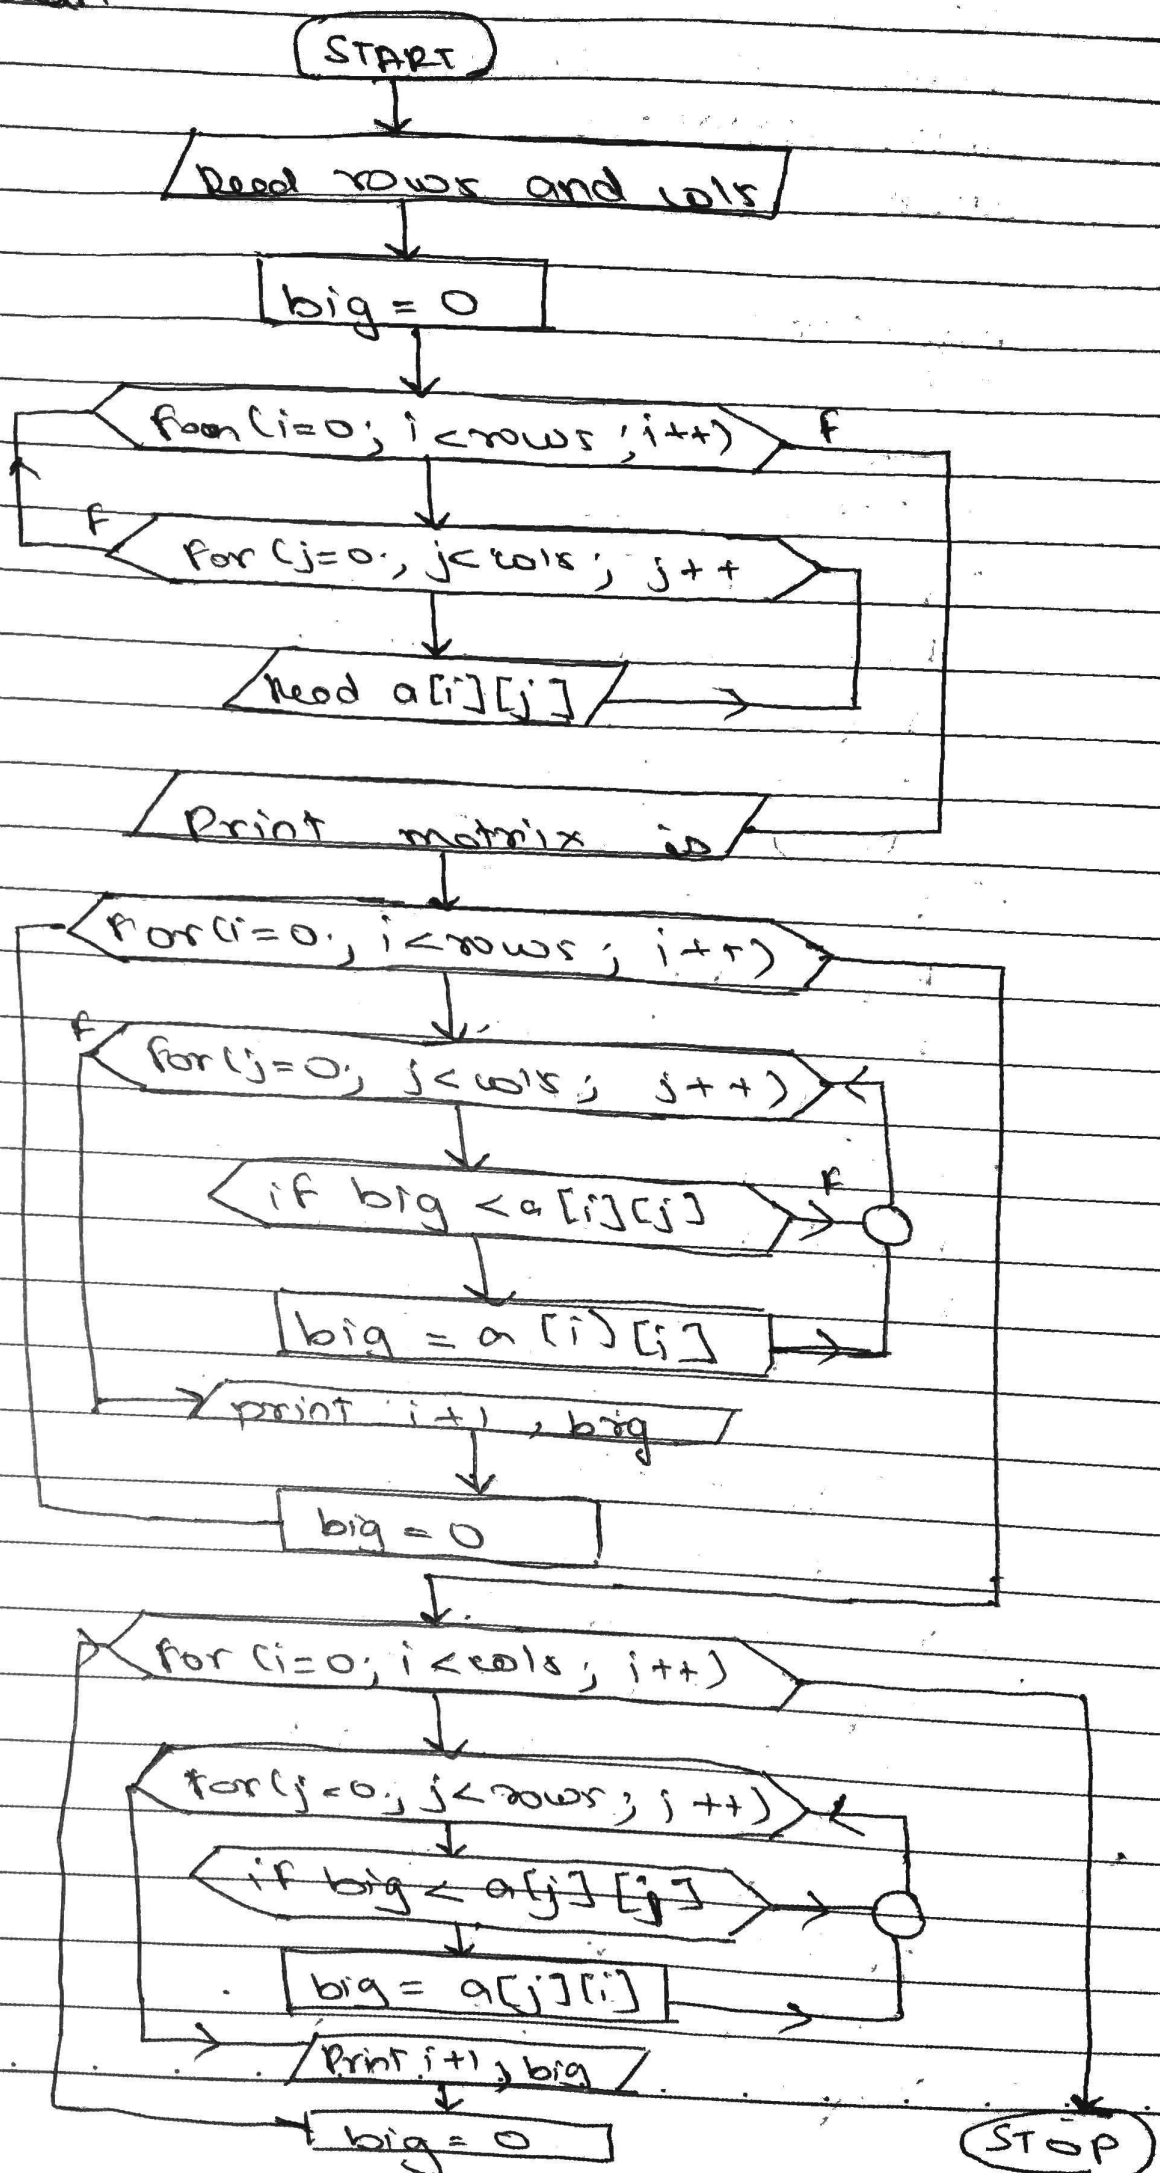 START
Read rows and cols
big = 0
for (i=0; i<rows; i++)
F
F
for (j=0; j<cols; j++
Read a[i][j]
Print matrix is
for(i=0; i<rows; i++)
F
for(j=0; j<cols; j++)
if big <a[i][j]
F
big = a[i][j]
print i+1, big
big = 0
for (i=0; i<cols; i++)
for(j=0; j<rows; j++)
if big < a[j][j]
big = a[j][i]
Print i+1, big
big = 0
STOP